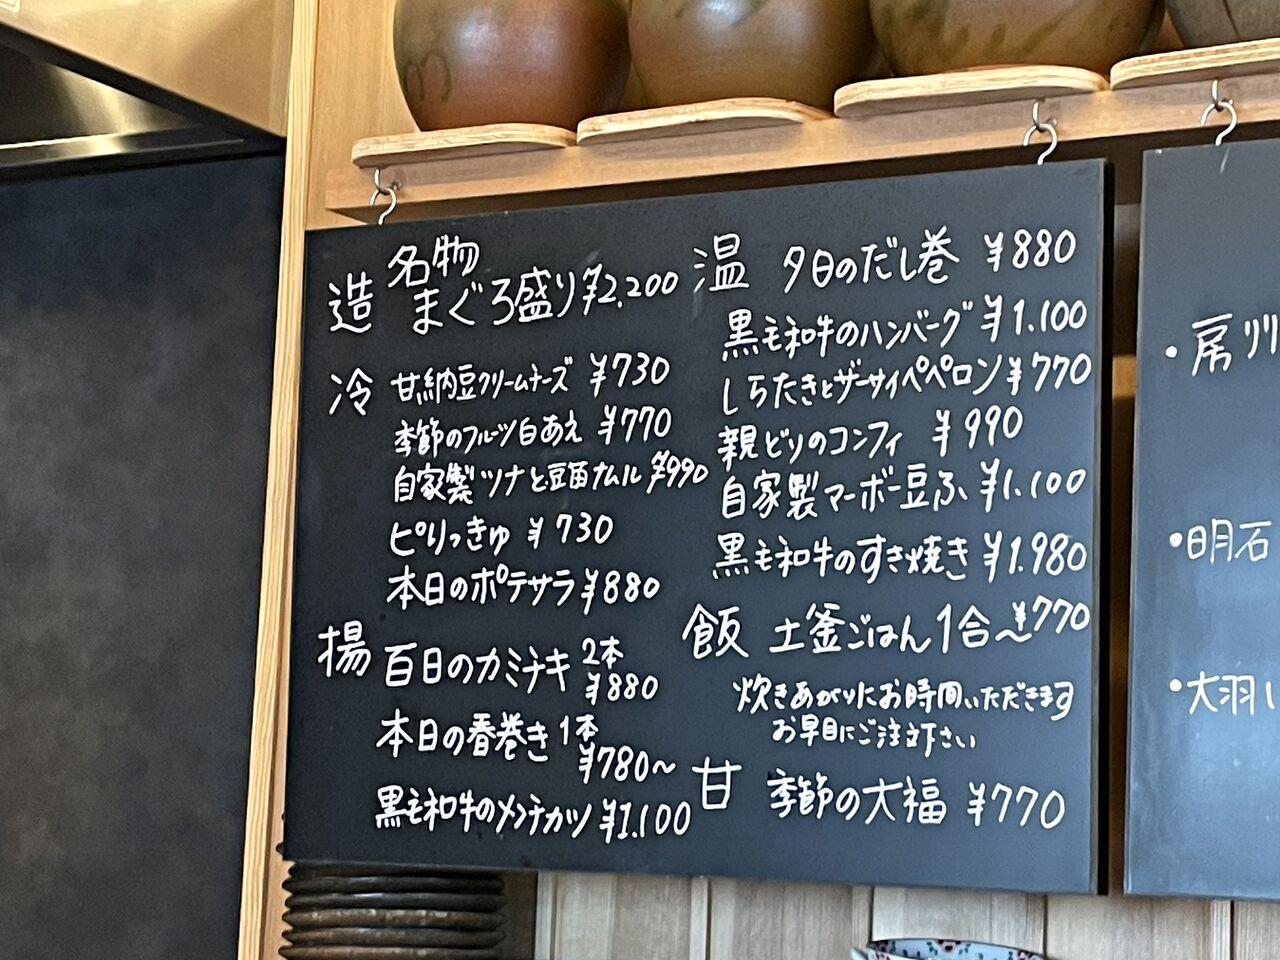 造 名物
まぐろ盛り ¥2,200
冷 甘納豆クリームチーズ ¥730
季節のフルーツ白あえ ¥770
自家製ツナと豆苗ナムル ¥990
ピりっきゅ ¥730
本日のポテサラ ¥880
揚 百日のカミチキ 2本 ¥880
本日の春巻き 1本 ¥780〜
黒毛和牛のメンチカツ ¥1,100
温 夕日のだし巻 ¥880
黒毛和牛のハンバーグ ¥1,100
しらたきとザーサイペペロン ¥770
親どりのコンフィ ¥990
自家製マーボー豆ふ ¥1,100
黒毛和牛のすき焼き ¥1,980
飯 土釜ごはん 1合〜 ¥770
炊きあがりにお時間いただきます
お早目にご注文下さい
甘 季節の大福 ¥770
・房州
・明石
・大羽い